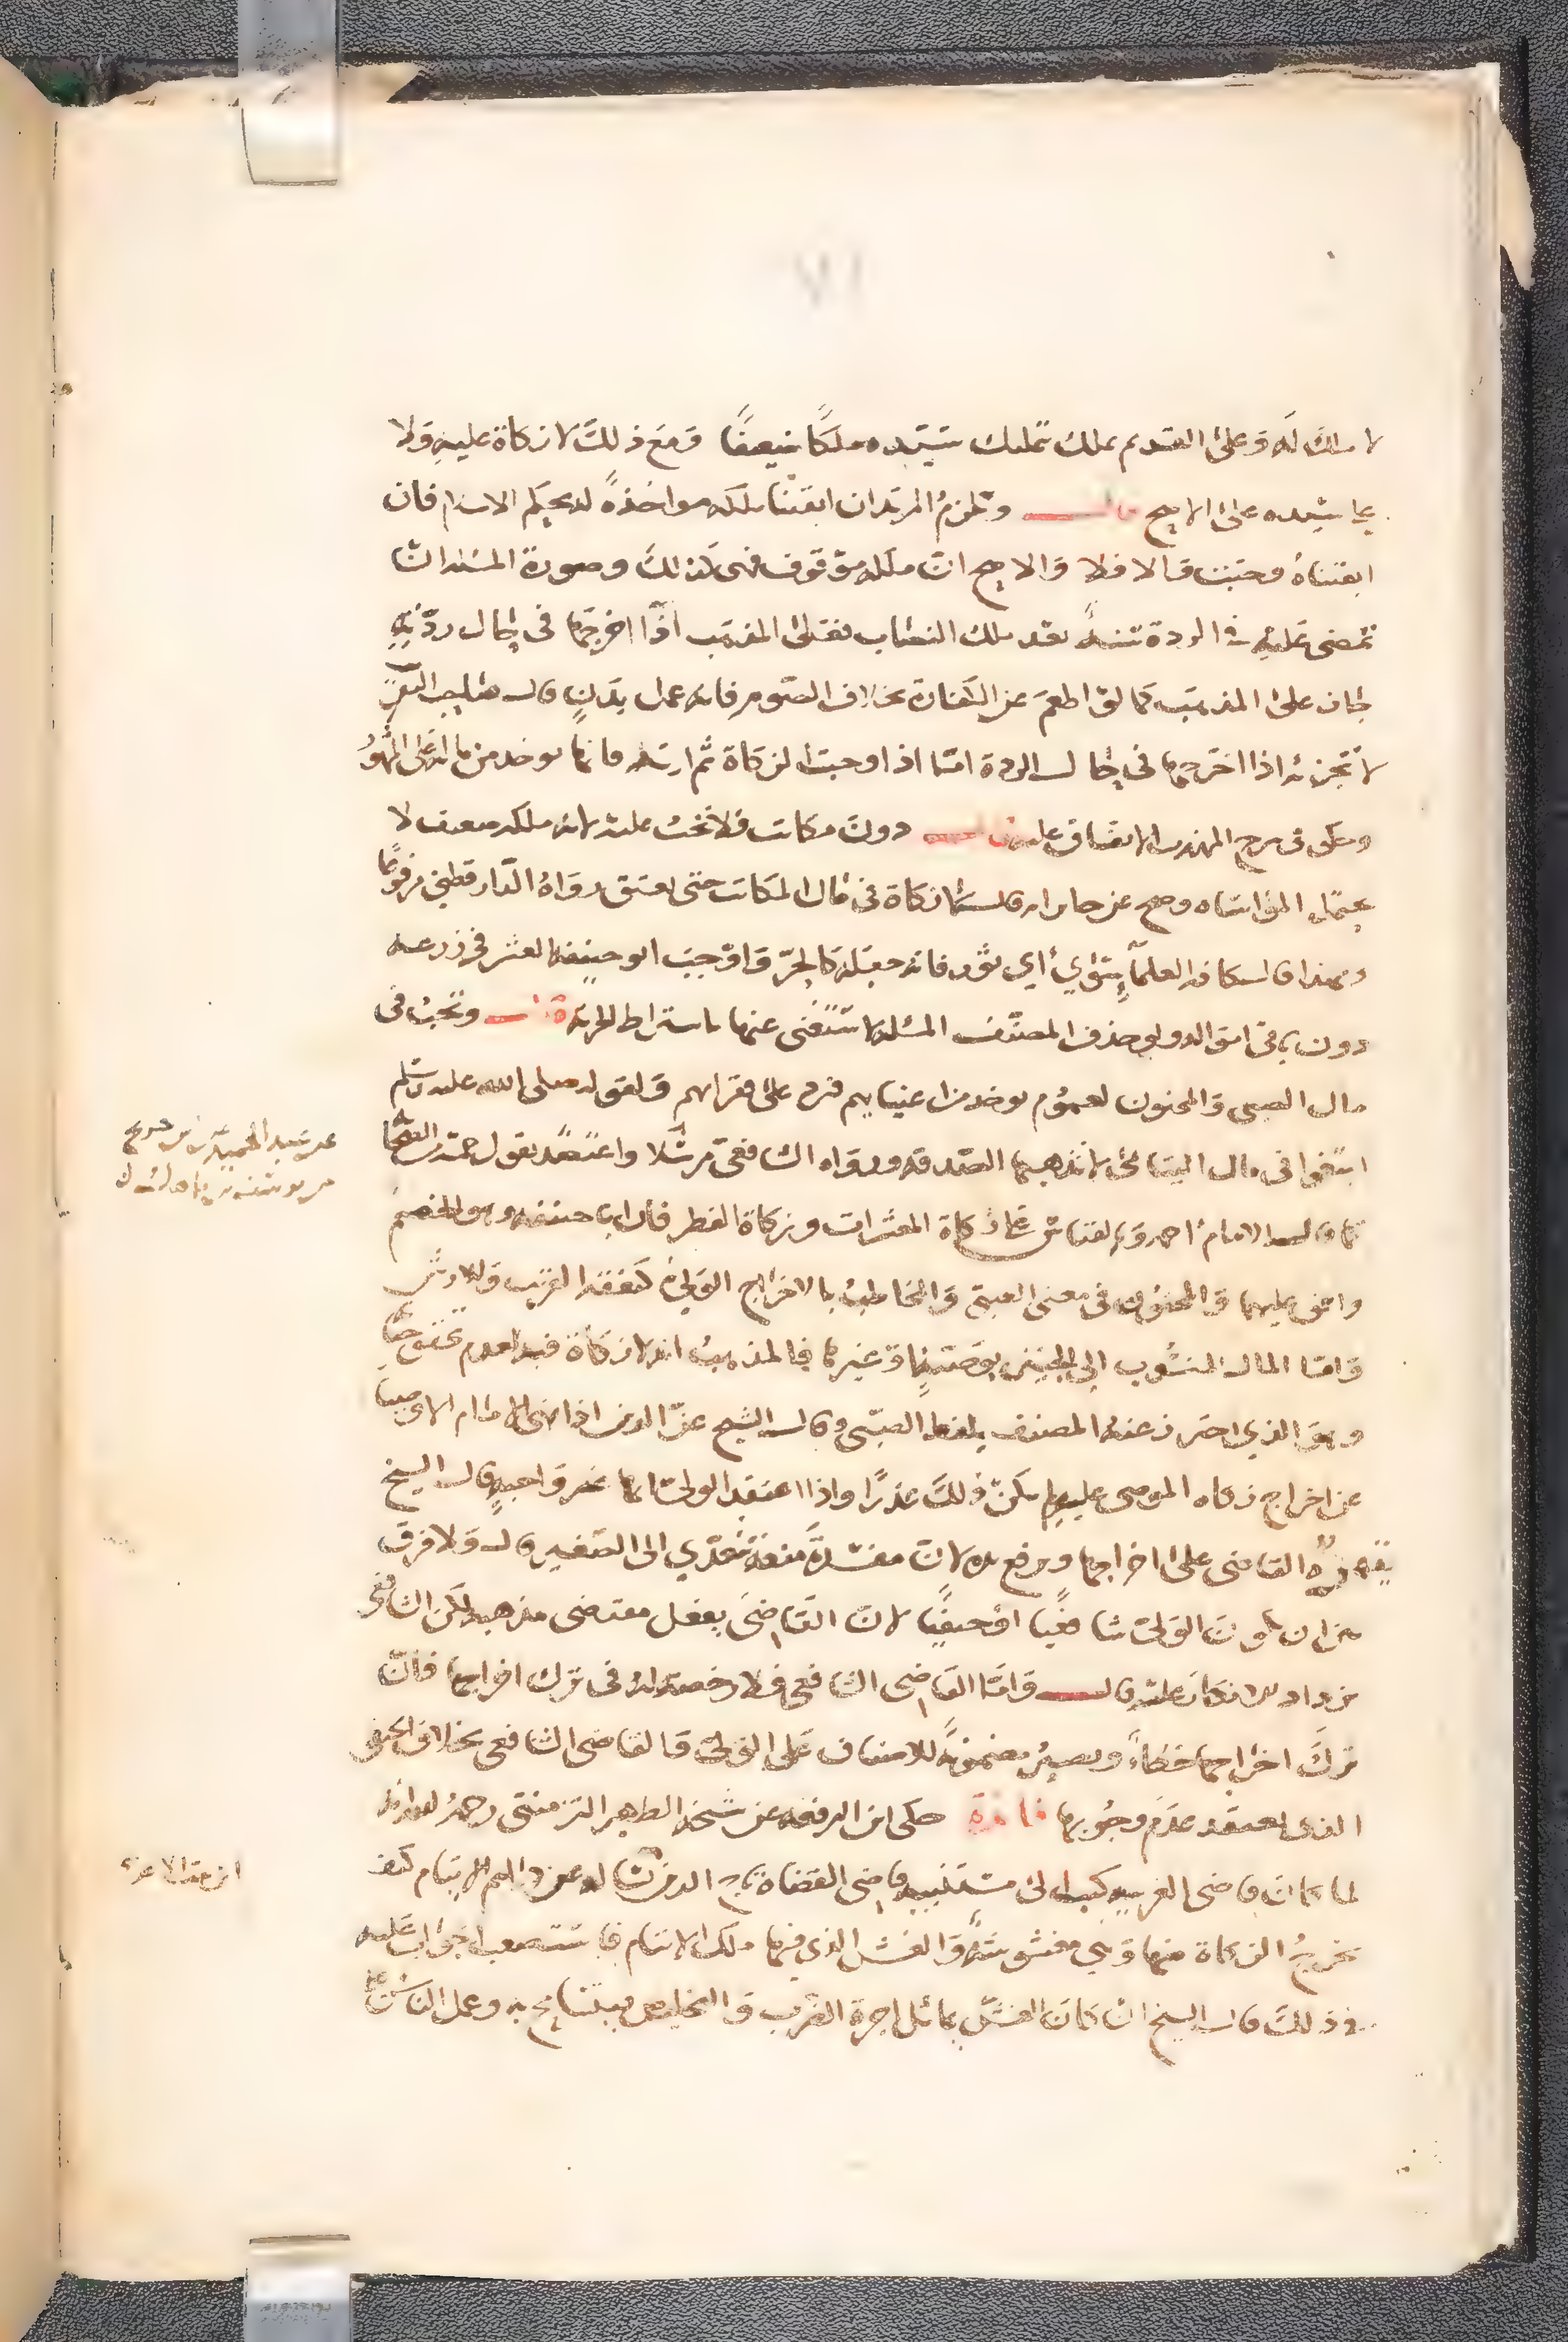 لا ملك له وعلى القديم يملك بتمليك سيده ملكا ضعيفا ومع ذلك لا زكاة عليه ولا
على سيده على الاصح قال وتلزم المرتد ان ابقينا ملكه مواخذة له بحكم الاسلام فان
ابقيناه وجبت والا فلا والاصح ان ملكه موقوف فهى كذلك وصورة المسئلة ان
تمضى عليه فى الردة سنة بعد ملك النصاب فعلى المذهب اذا اخرجها فى حال ردته
جاز على المذهب كما لو اطعم عن الكفارة بخلاف الصوم فانه عمل بدن قال صاحب التقريب
لا تجزئه اذا اخرجها فى حال الردة اما اذا وجبت الزكاة ثم ارتد فانها توخذ من ماله على المشهور
وحكى فى شرح المهذب الاتفاق عليه قال دون مكاتب فلا تجب عليه لان ملكه ضعيف لا
يحتمل المواساه وصح عن جابر انه قال لا زكاة فى مال المكاتب حتى يعتق رواه الدارقطنى مرفوعا
وبهذا قال كافة العلماء سوى ابى ثور فانه جعله كالحر واوجب ابو حنيفة العشر فى زرعه
دون باقى امواله ولو حذف المصنف المسئله لاستغنى عنها باشتراط الحرية قال وتجب فى
مال الصبى والمجنون لعموم توخذ من اغنيايهم فترد على فقرايهم ولقوله صلى الله عليه وسلم
ابتغوا فى مال اليتامى لا تذهبها الصدقه رواه الشافعى مرسلا واعتضد بقول خمسة من الصحابة
كما قاله الامام احمد وبالقياس على زكاة المعشرات وزكاة الفطر فان ابا حنيفه وهو الخصم
وافق عليهما والمجنون فى معنى الصبى والمخاطب بالاخراج الولى كنفقة القريب والارش
واما المال المنسوب الى الجنين بوصية وغيرها فالمذهب انه لا زكاة فيه لعدم تحقق حياته
وهو الذى احترز عنه المصنف بلفظ الصبى وقال الشيخ عز الدين اذا نهى الامام الاوصيا
عن اخراج زكاه الموصى عليهم لم يكن ذلك عذرا واذا اعتقد الولى انها غير واجبه قال الشيخ
القاضى على اخراجها ويرفع يده لان مفسدة منعه تتعدى الى الصغير قال ولا فرق
بين ان يكون الولى شافعيا او حنفيا لان القاضى يفعل مقتضى مذهبه لكن الشافعى
يزداد قال واما القاضى الشافعى فلا رخصة له فى ترك اخراجها فان
ترك اخراجها خطا ويصير مضمونة للاصناف على الولى والقاضى الشافعى بخلاف الحنفى
الذى يعتقد عدم وجوبها فائدة حكى ابن الرفعه عن شيخه الظهير التزمنتى رحمه الله انه
لما كان قاضى الغربيه كتب الى مستنيبه قاضى القضاة تاج الدين يساله عن دراهم الايتام كيف
يخرج الزكاة منها وهى مغشوشة والغش الذى فيها ملك الايتام فاستصعب الجواب عليه
فى ذلك قال الشيخ ان كان الغش يماثل اجرة الضرب والتخليص فيتسامح به وعمل الناس على